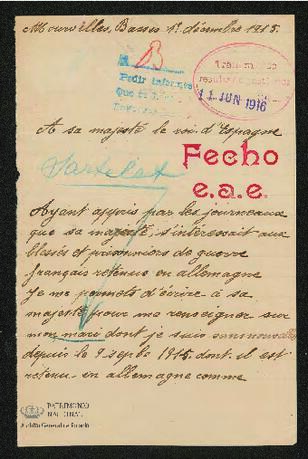 Mourvilles, Basses 1r décembre 1915.
B
Pedir informes
11 JUN 1916
A sa majesté le roi d'Espagne
Fecho
e.a.e.
Ayant appris par les journeaux
que sa majesté, s'intéressait aux
blasés et prisonniers de guerre
français retenus en allemagne
Je me permets d'écrire à sa
majesté pour me renseigner sur
mon mari dont je suis sans nouvelles
depuis le 9 sepbe 1915, dont il est
retenu en allemagne comme
PATRIMONIO
NACIONAL
Archivo General de Palacio